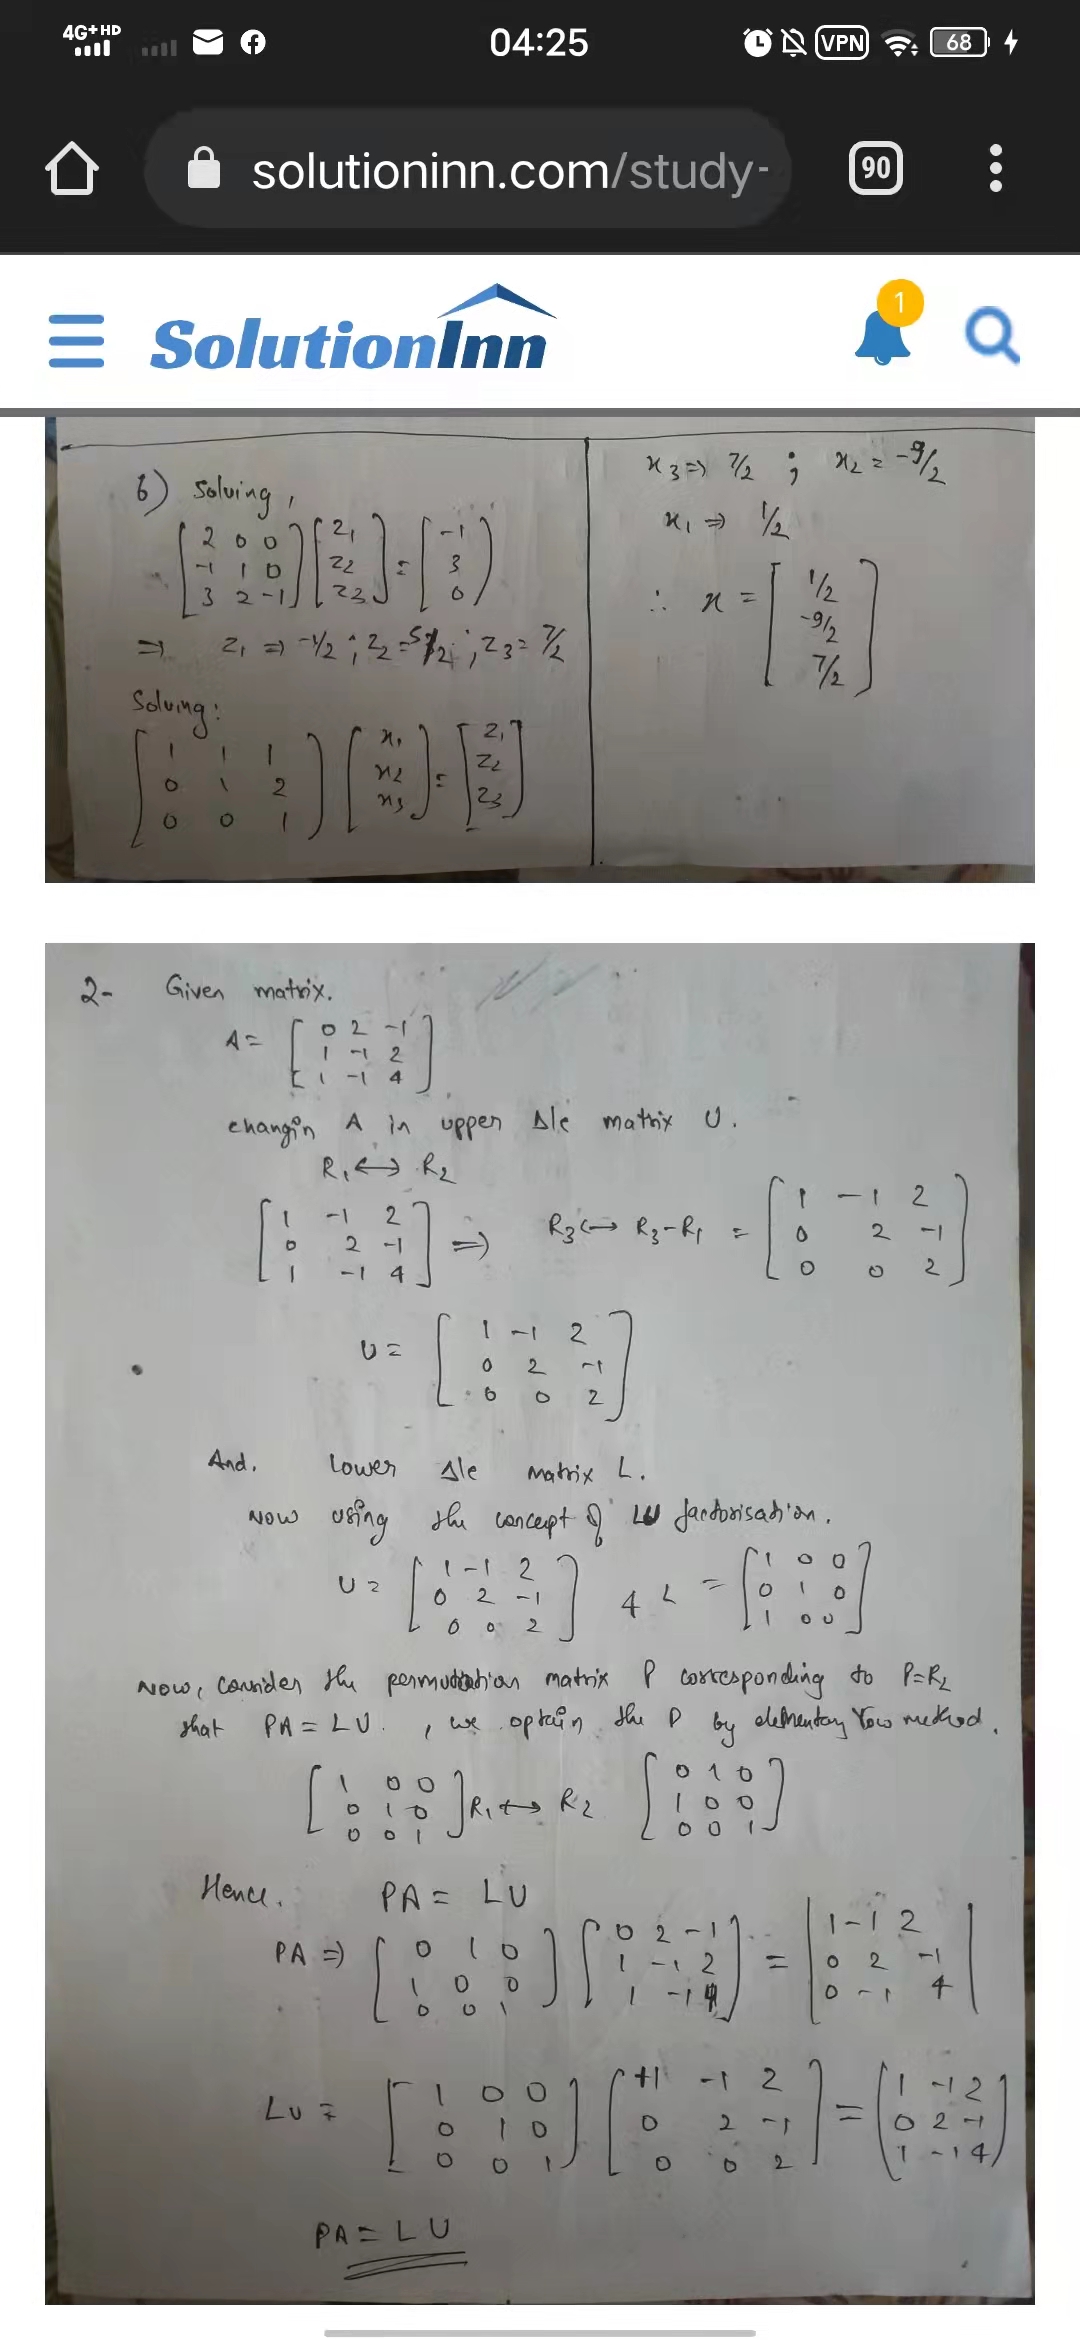 4G+HD 04:25 VPN 68
solutioninn.com/study- 90
SolutionInn 1
6) Solving,
[2 0 0] [z1] = [-1]
[-1 1 0] [z2] [3]
[3 2 -1] [z3] [0]
=> z1 => -1/2 ; z2 = 5/2 ; z3 = 7/2
Solving:
[1 1 1] [x1] = [z1]
[0 1 2] [x2] [z2]
[0 0 1] [x3] [z3]
x3 => 7/2 ; x2 = -9/2
x1 => 1/2
∴ x = [1/2]
[-9/2]
[7/2]
2- Given matrix.
A = [0 2 -1]
[1 -1 2]
[1 -1 4]
changin A in upper Δle matrix U.
R1 ↔ R2
[1 -1 2]
[0 2 -1] => R3 ↔ R3-R1 = [1 -1 2]
[1 -1 4] [0 2 -1]
[0 0 2]
U = [1 -1 2]
[0 2 -1]
[0 0 2]
And. Lower Δle matrix L.
Now using the concept of LU factorisation.
U = [1 -1 2] 4 L = [1 0 0]
[0 2 -1] [0 1 0]
[0 0 2] [1 0 0]
Now, consider the permutation matrix P corresponding to P=R2
that PA = LU. , we optain the P by elementary row method.
[1 0 0] R1 ↔ R2 [0 1 0]
[0 1 0] [1 0 0]
[0 0 1] [0 0 1]
Hence. PA = LU
PA => [0 1 0] [0 2 -1] = [1 -1 2]
[1 0 0] [1 -1 2] [0 2 -1]
[0 0 1] [1 -1 4] [0 -1 4]
LU = [1 0 0] [+1 -1 2] = [1 -1 2]
[0 1 0] [0 2 -1] [0 2 -1]
[0 0 1] [0 0 2] [1 -1 4]
PA = LU